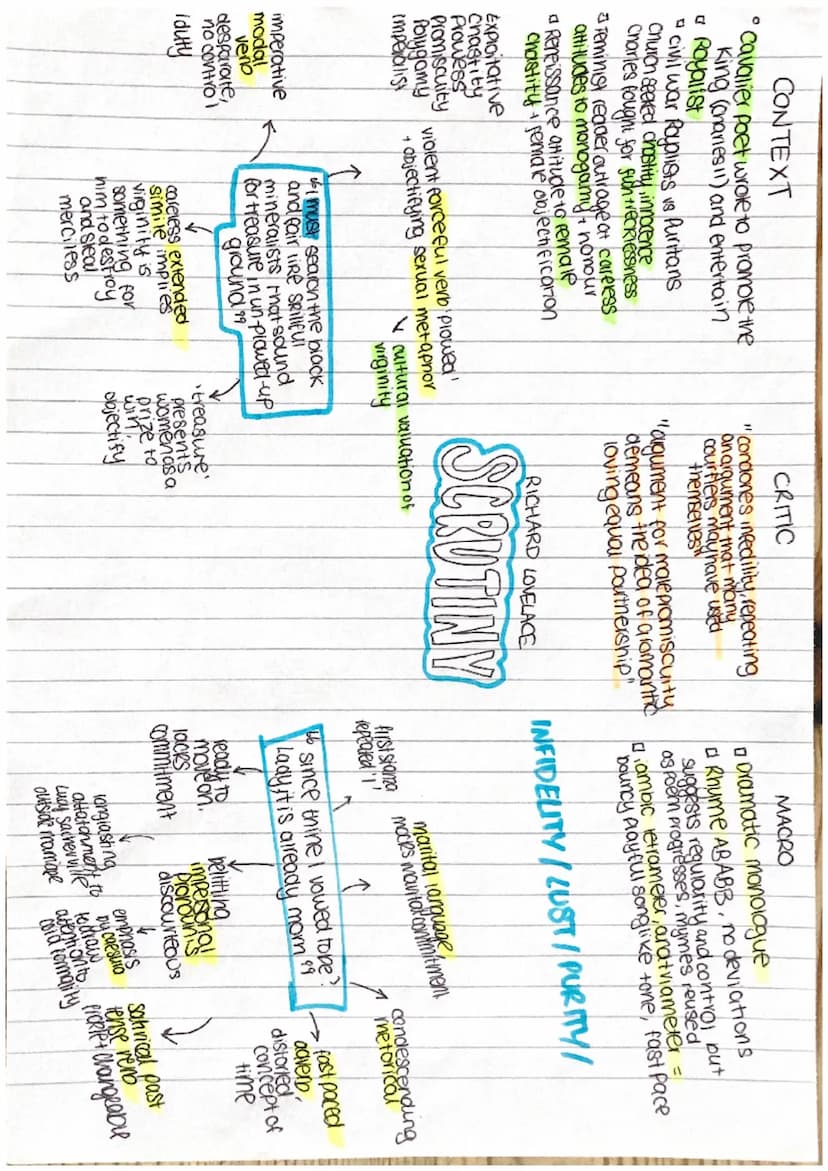 CONTEXT
cavalier poet wrote to promote the
King (Charles II) and entertain
Royalist
Civil war Royalists vs Puritans
Church seeked chastity, innocence
Charles fought for fun + recklessness
Feminist reader outrage at careless
attitudes to monogamy + honour
Renaissance attitude to female
chastity + female objectification
CRITIC
"condones infidility, repeating
an argument that many
courtiers may have used
themselves"
"argument for male promiscuity
demeans the idea of a romantic
loving equal partnership"
MACRO
Dramatic monologue
Rhyme ABABB, no deviations
suggests regularity and control but
as poem progresses, rhymes reused
iambic tetrameter and trimeter =
bouncy playful song like tone, fast pace
RICHARD LOVELACE
SCRUTINY
INFIDELITY / LUST / PURITY /
Exploitative
Chastity
Prowess
Promiscuity
Polygamy
Imperialist
violent forceful verb 'plowed'
+ objectifying sexual metaphor
cultural valuation of
virginity
imperative
modal
verb
desparate,
no control
"I must search the black
and fair like skillful
mineralists that sound
for treasure in un-plowed-up
ground"
careless extended
simile implies
virginity is
something for
him to destroy
and steal
merciless
'treasure'
presents
women as a
prize to
win,
objectify
first stanza
repeated 'I'
marital language,
mocks marital commitment
condescending
rhetorical
"since thine I vowed to be?
Lady, it is already morn"
ready to
move on,
lacks
commitment
belitting
impersonal
pronoun is
discourteous
fast paced
adverb,
distorted
concept of
time
longlasting
attatchment to
Lucy Sacheville
outside marriage
emphasis
by
to draw
attention to
cold formality
satirical past
tense verb